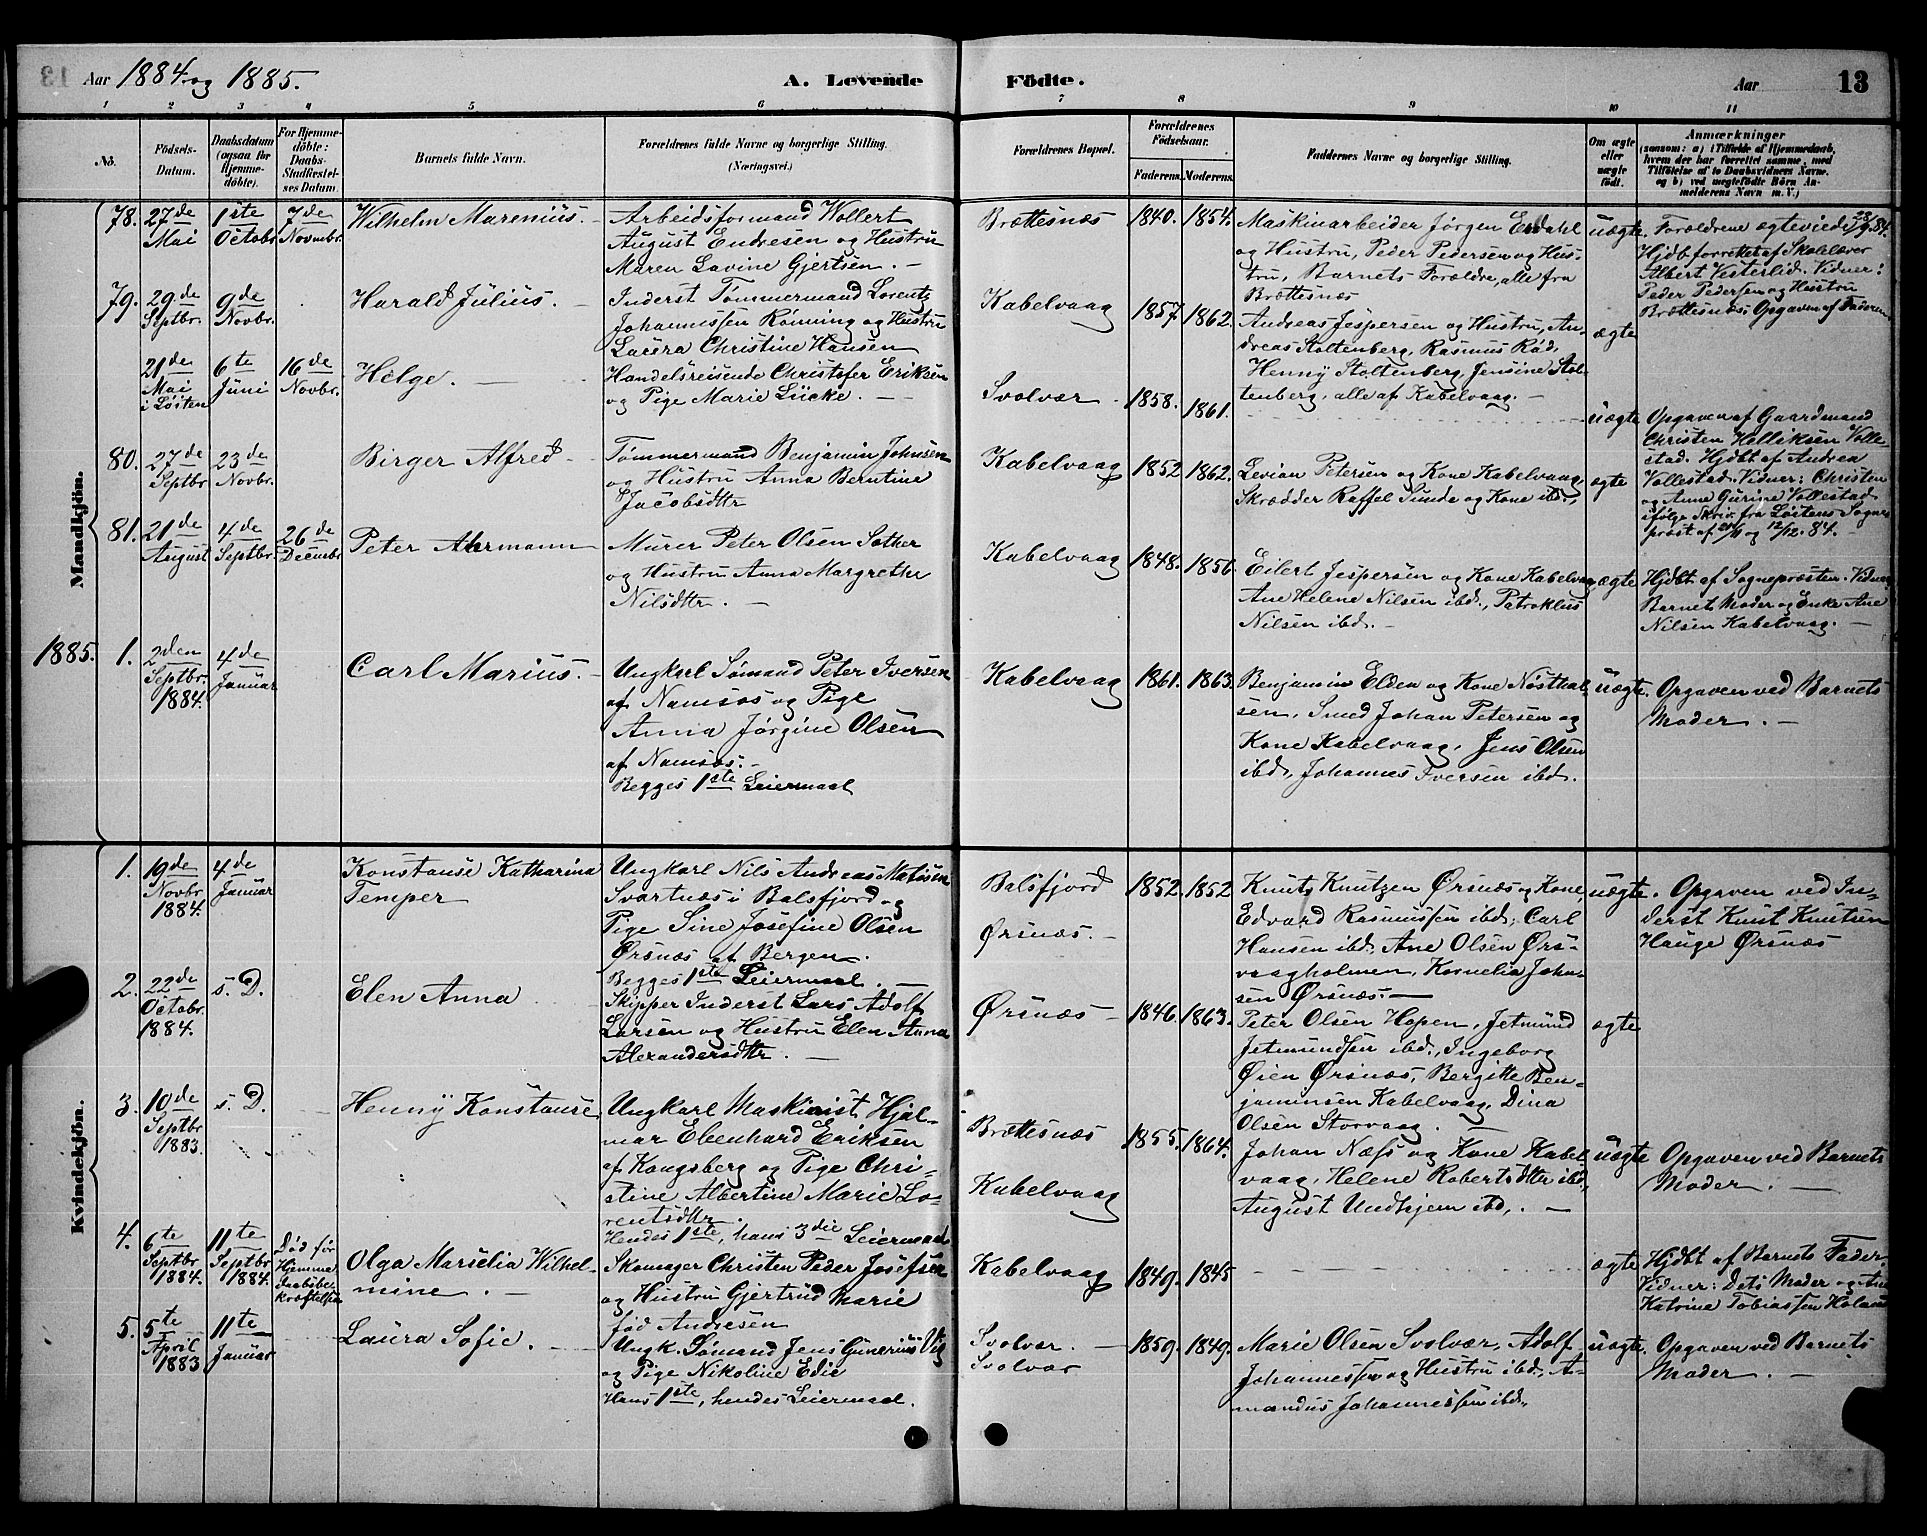 Aar 1884 og 1885.
A. Levende Födte.
Aar
13
1 2 3 4 5 6 7 8 9 10 11
No.
Födsels-
Datum.
Daabsdatum
(ogsaa for
Hjemme-
döbte).
For Hjemme-
döbte:
Daabs-
Stadfæstel-
ses Datum.
Barnets fulde Navn.
Forældrenes fulde Navne og borgerlige Stilling.
(Næringsvei.)
Forældrenes Bopæl.
Forældrenes
Födselsaar.
Faderens. Moderens.
Faddernes Navne og borgerlige Stilling.
Om ægte
eller
uægte
födt.
Anmærkninger
(saasom: a) i Tilfælde af Hjemmedaab,
hvem der har forrettet samme, med
Tilföielse af to Daabsvidners Navne,
og b) ved uægtefödte Börn An-
melderens Navn m. V.)
Mandkjön.
78. 27de Mai
1ste Octobr.
7de Novmbr.
Wilhelm Marenius.
Arbeidsformand Wollert
August Endresen og Hustru
Maren Lavine Gjertsen.
Brættesnæs
1840. 1854.
Maskinarbeider Jørgen Erdahl
og Hustru, Peder Pedersen og Hus-
tru, Barnets Forældre, alle fra
Brættesnæs
uægte.
Forældrene ægteviede 28/9 84.
Hjdb. forrettet af Skolelærer
Albert Vesterlid. Vidner:
Peder Pedersen og Hustru
Brættesnæs. Opgaven af Faderen
79. 29de Septbr.
9de Novbr.
Harald Julius.
Inderst Tømmermand Lorentz
Johannissen Rønning og Hustru
Laura Christine Hansen
Kabelvaag
1857. 1862.
Andreas Jespersen og Hustru, An-
dreas Stoltenberg, Rasmus Rød,
Henny Stoltenberg, Jensine Stol-
tenberg, alle af Kabelvaag.
ægte
21de Mai i Løiten
6te Juni
16de Novbr.
Helge.
Handelsreisende Christofer Eriksen
og Pige Marie Lücke.
Svolvær
1858. 1861.
uægte
Opgaven af Gaardmand
Christen Helliksen Volle-
stad. Hjdbt af Andrea
Vollestad. Vidner: Christen
og Anne Gurine Vollestad
ifølge Skriv. fra Løitens Sogne-
præst af 20/11 og 12/12 84.
80. 27de Septbr
23de Novbr.
Birger Alfred
Tømmermand Benjamin Johnsen
og Hustru Anna Berntine
Jacobsdtr
Kabelvaag
1852 1862.
Levian Petersen og Kone Kabelvaag
Skrædder Raffel Sunde og Kone ibd.,
ægte
81. 21de August
4de Septbr.
26de Decmbr
Peter Ahrmann
Murer Peter Olsen Sother
og Hustru Anna Margrethe
Nilsdtr.
Kabelvaag
1848. 1856.
Eilert Jespersen og Kone Kabelvaag
Ane Helene Nilsen ibd., Patroklus
Nilsen ibd.
ægte
Hjdbt. af Sognepræsten. Vidner
Barnets Moder og Enke Ane
Nilsen Kabelvaag.
1885. 1. 2den Septbr. 1884.
4de Januar
Carl Marius.
Ungkarl Sømand Peter Iversen
af Namsos og Pige
Anna Jørgine Olsen
af Namsos.
Begges 1ste Leiermaal
Kabelvaag
1861. 1863.
Benjamin Elden og Kone Nøsthal-
sen, Smed Johan Petersen og
Kone Kabelvaag, Jens Olsen
ibd., Johannes Iversen ibd.
uægte.
Opgaven ved Barnets
Moder.
Kvindekjön.
1. 19de Novbr 1884.
4de Januar
Konstanse Katharina
Temper
Ungkarl Nils Andreas Matisen
Svartnæs i Balsfjord og
Pige Sine Josefine Olsen
Ørsnæs af Bergen.
Begges 1ste Leiermaal.
Balsfjord
Ørsnæs.
1852. 1852
Knut Knutzen Ørsnæs og Kone,
Edvard Rasmussen ibd, Carl
Hansen ibd, Ane Olsen Ørs-
vaagholmen, Kornelia Johan-
sen Ørsnæs.
uægte.
Opgaven ved In-
derst Knut Knutsen
Hauge Ørsnæs
2. 22de Octobr. 1884.
s. D.
Elen Anna
Skipper Inderst Lars Adolf
Larsen og Hustru Elen Anna
Alexandersdtr.
Ørsnæs
1846. 1863.
Peter Olsen Hopen, Jetmund
Jetmundsen ibd., Ingeborg
Øien Ørsnæs, Bergitte Ben-
jaminsen Kabelvaag, Dina
Olsen Storvaag.
ægte
3. 10de Septbr 1883.
s. D.
Henny Konstanse
Ungkarl Maskinist Hjal-
mar Ebenhard Eriksen
af Kongsberg og Pige Chri-
stine Albertine Marie Lo-
rentsdtr.
Hendes 1ste, hans 3die Leiermaal
Brættesnæs
Kabelvaag
1855. 1864.
Johan Næss og Kone Kabel-
vaag, Helene Robertsdtr ibd,
August Undhjem ibd,
uægte
Opgaven ved Barnets
Moder.
4. 6te Septbr 1884.
11te Septbr 1884.
Død før
Hjemme-
daabsbe-
kræftelsen
Olga Marselia Wilhel-
mine.
Skomager Christen Peder Josefsen
og Hustru Gjertrud Marie
fød Andresen
Kabelvaag
1849. 1845
ægte
Hjdbt af Barnets Fader.
Vidner: Dets Moder og Ane
Katrine Tobiassen Høland
5. 5te April 1883
11te Januar
Laura Sofie.
Ungk. Sømand Jens Gunerius Vig
og Pige Nikoline Edis
Hans 1ste, hendes Leiermaal.
Svolvær.
Svolvær
1859. 1849.
Marie Olsen Svolvær, Adolf
Johannessen og Hustru ibd., A-
mandus Johannessen ibd.,
uægte.
Opgaven ved Barnets
Moder.